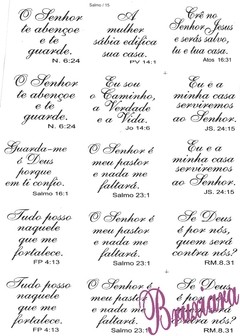 Salmo / 15
O Senhor
te abençoe
e te
guarde.
N. 6:24
A
mulher
sábia edifica
sua casa.
PV 14:1
Crê no
Senhor Jesus
e serás salvo,
tu e tua casa.
Atos 16:31
O Senhor
te abençoe
e te
guarde.
N. 6:24
Eu sou
o Caminho,
a Verdade
e a Vida.
Jo 14:6
Eu e a
minha casa
serviremos
ao Senhor.
JS. 24:15
Guarda-me
ó Deus
porque
em ti confio.
Salmo 16:1
O Senhor é
meu pastor
e nada me
faltará.
Salmo 23:1
Eu e a
minha casa
serviremos
ao Senhor.
JS. 24:15
Tudo posso
naquele
que me
fortalece.
FP 4:13
O Senhor é
meu pastor
e nada me
faltará.
Salmo 23:1
Se Deus
é por nós,
quem será
contra nós?
RM.8.31
Tudo posso
naquele
que me
fortalece.
FP 4:13
O Senhor é
meu pastor
e nada me
faltará.
Salmo 23:1
Se Deus
é por nós,
RM.8.31